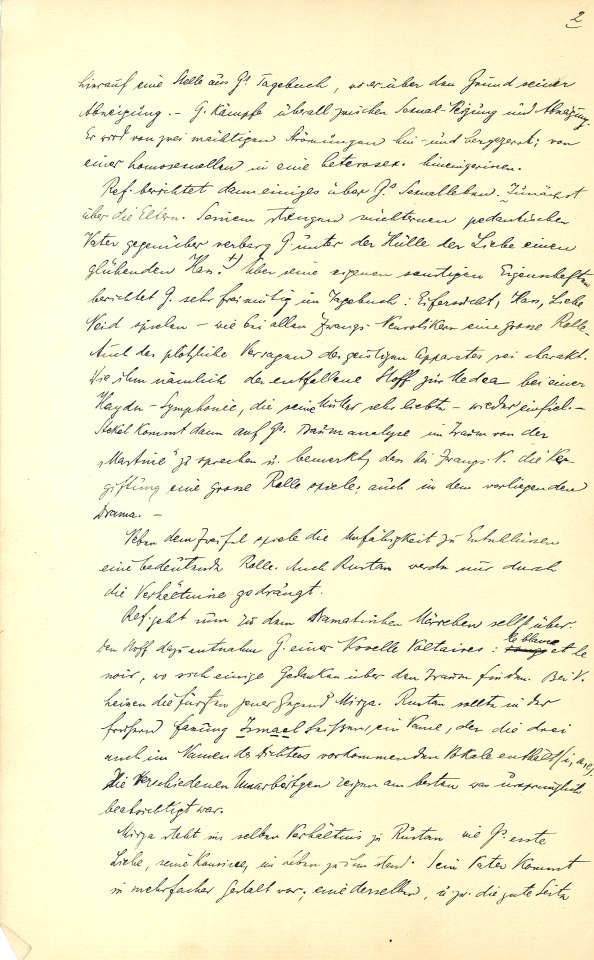 2
hierauf eine Stelle aus G's Tagebuch, wo er über den Grund seiner
Abneigung. – G. kämpfe überall zwischen Sexual-Neigung und Abneigung.
Er wird von zwei mächtigen Strömungen hin- und hergezerrt; von
einer homosexuellen in eine heterosex. hineingerissen.
Ref. berichtet dann einiges über G's Sexualleben. Zunächst
über die Eltern. Seinem strengen nüchternen pedantischen
Vater gegenüber verberg G unter der Hülle der Liebe einen
glühenden Hass. Über seine eigenen sonstigen Eigenschaften
berichtet G. sehr freimütig im Tagebuch: Eifersucht, Hass, Liebe
Neid spielen – wie bei allen Zwangs-Neurotikern eine grosse Rolle.
Auch das plötzliche Versagen des geistigen Apparates sei charakt.
Wie ihm nämlich der entfallene Stoff zur Medea bei einer
Haydn-Symphonie, die seine Mutter sehr liebte – wieder einfiel. –
Stekel kommt dann auf G's. Traumanalyse im Traum von der
„Martine" zu sprechen u. bemerkt, dass bei Zwangs-N. die Ver-
giftung eine grosse Rolle spiele; auch in dem vorliegenden
Drama. –
Neben dem Zweifel spiele die Unfähigkeit zu Entschlüssen
eine bedeutende Rolle. Auch Rustan werde nur durch
die Verhältnisse gedrängt.
Ref. geht nun zu dem Dramatischen Märchen selbst über.
Den Stoff dazu entnahm G. einer Novelle Voltaires: le blanc et le
noir, wo sich einige Gedanken über den Traum finden. Bei V.
heissen die Fürsten jener Gegend Mirza. Rustan sollte in der
früheren Fassung Ismael heissen, ein Name, der die drei
auch im Namen des Dichters vorkommenden Vokale enthält (i, a, e).
Die verschiedenen Umarbeitgen zeigen am besten was ursprünglich
beabsichtigt war.
Mirza steht im selben Verhältnis zu Rustan wie G's erste
Liebe, seine Kousine, im Leben zu ihm stand. Sein Vater kommt
in mehrfacher Gestalt vor; eine derselben, u. zw. die gute Seite